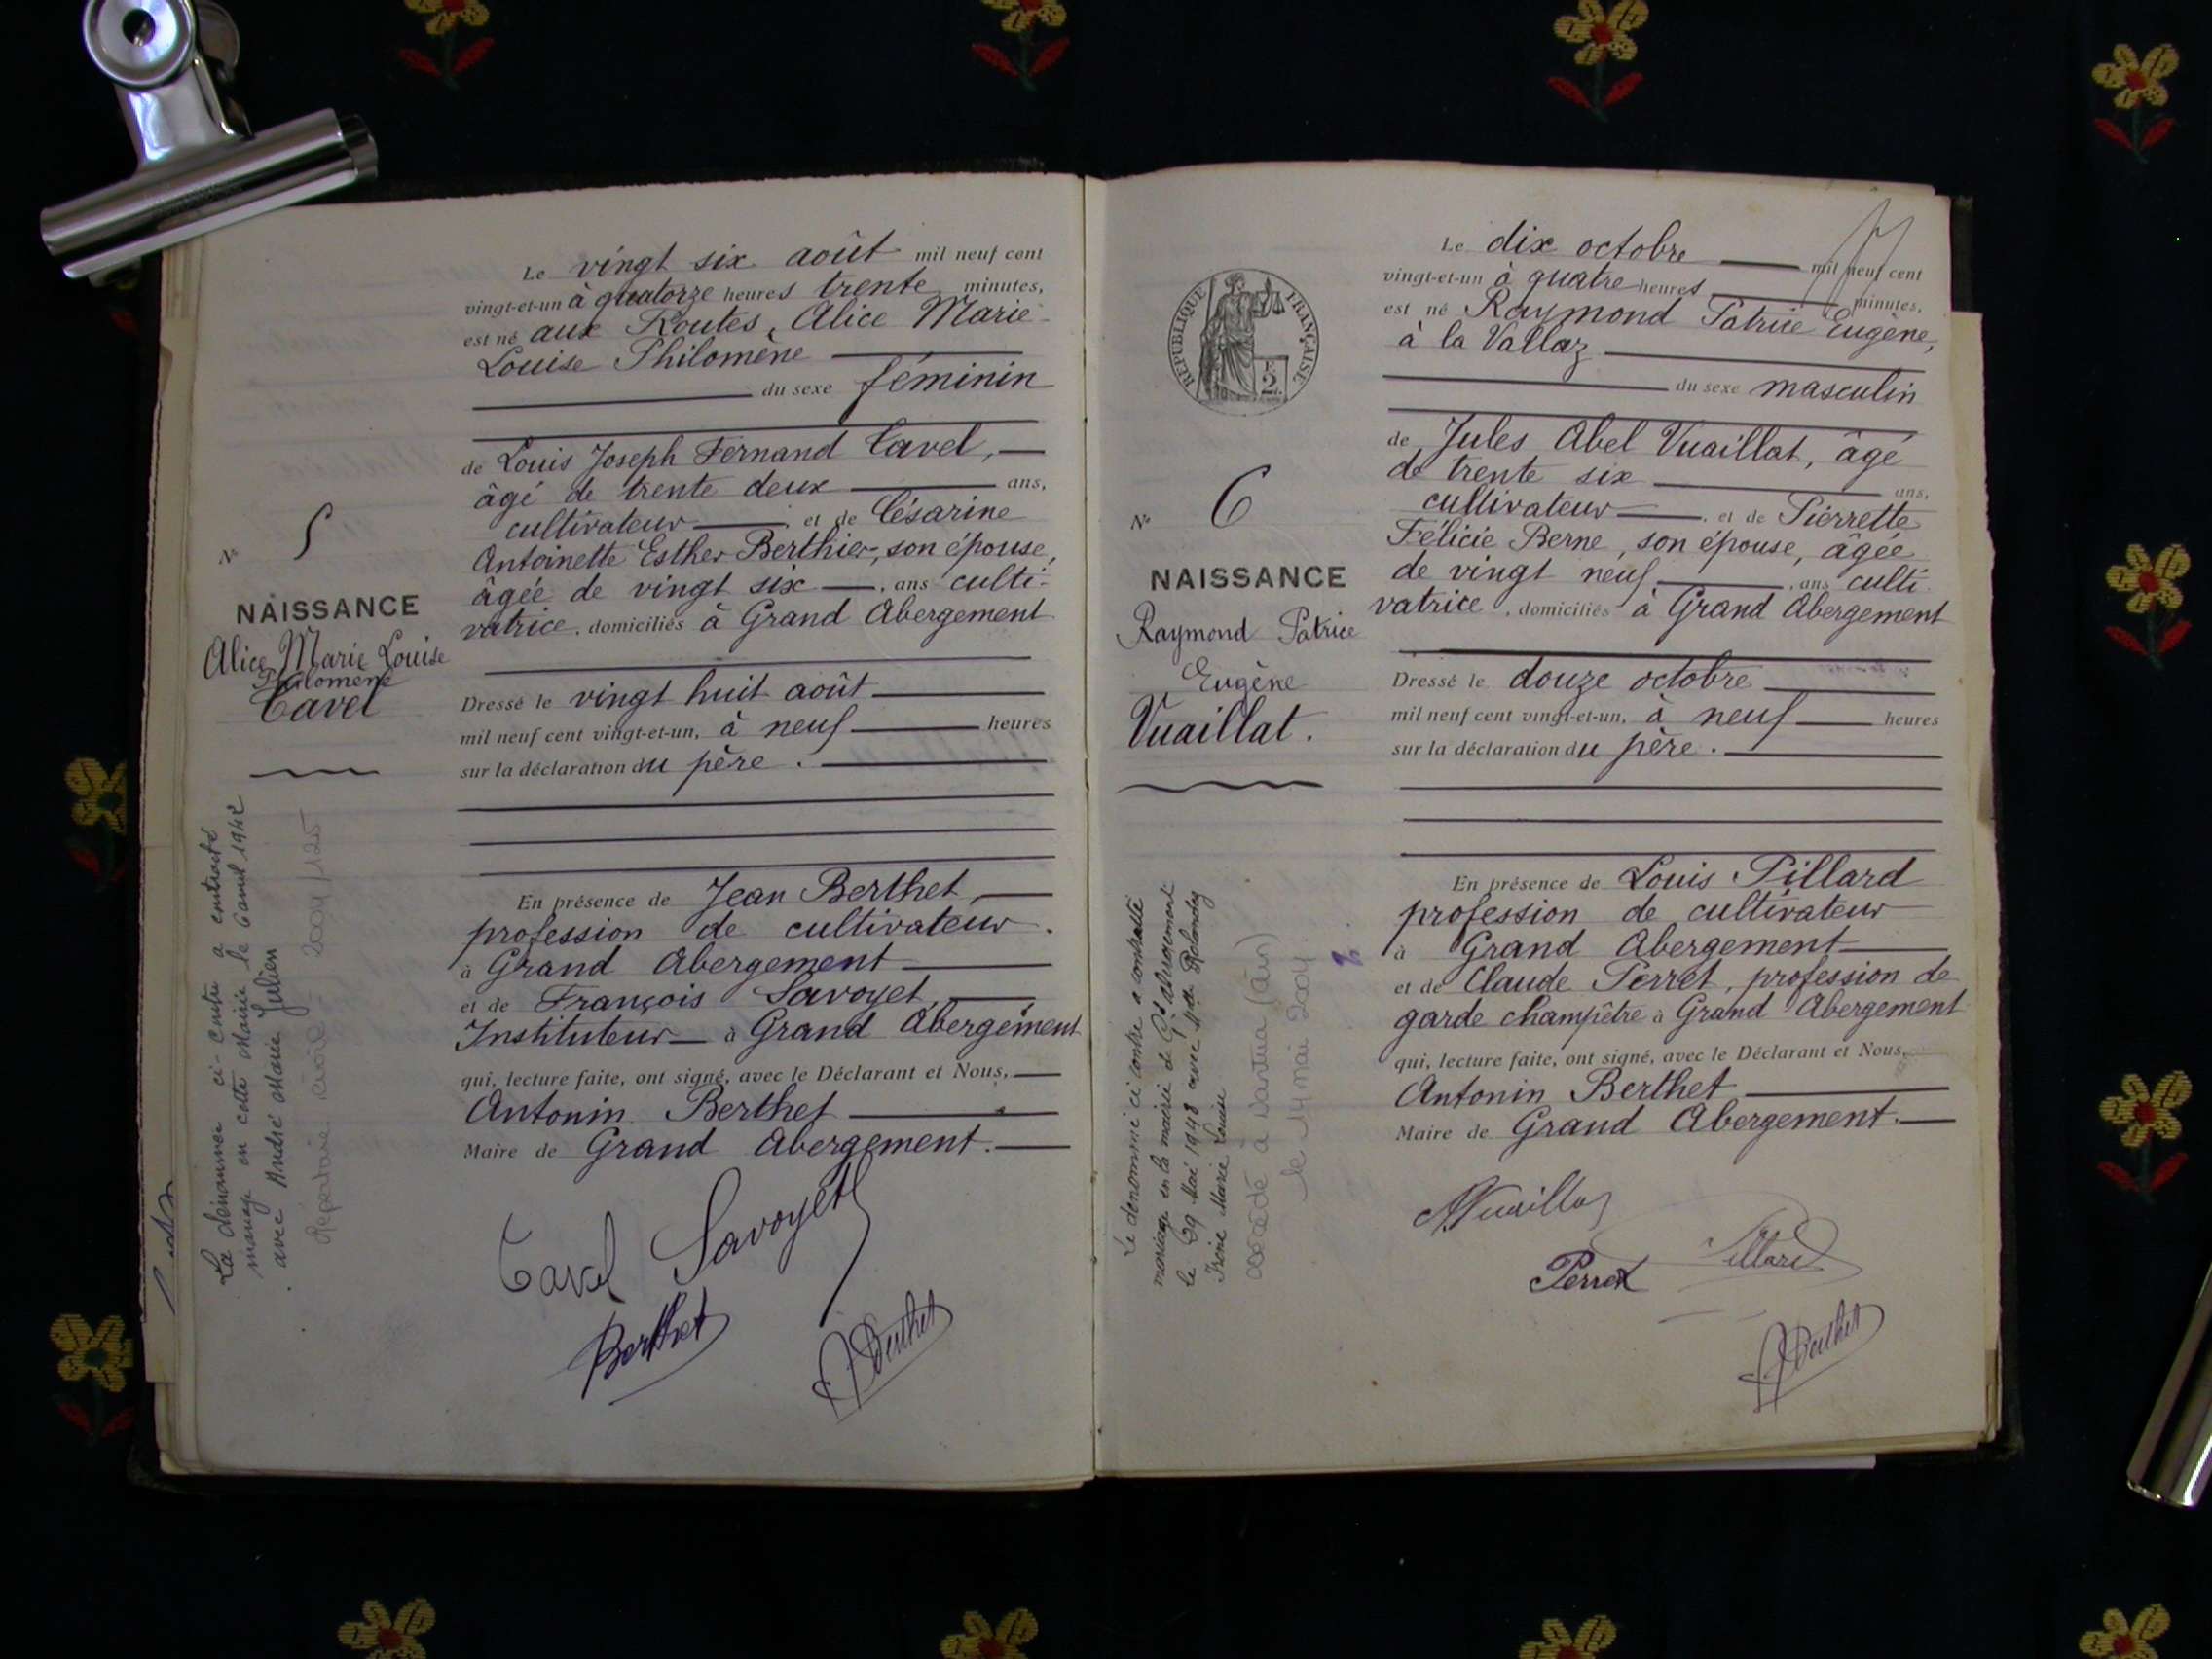 Le vingt six août mil neuf cent
vingt-et-un à quatorze heures trente minutes,
est né aux Routes, Alice Marie
Louise Philomène
du sexe féminin
de Louis Joseph Fernand Cavel,
âgé de trente deux ans,
cultivateur, et de Césarine
Antoinette Esther Berthier, son épouse,
âgée de vingt six, ans culti-
vatrice, domiciliés à Grand Abergement
Dressé le vingt huit août
mil neuf cent vingt-et-un, à neuf heures
sur la déclaration du père.
En présence de Jean Berthet,
profession de cultivateur.
à Grand Abergement
et de François Savoyet,
Instituteur à Grand Abergement
qui, lecture faite, ont signé, avec le Déclarant et Nous,
Antonin Berthet
Maire de Grand Abergement.
Cavel Savoyet
Berthet
A Berthet
N° 5
NAISSANCE
Alice Marie Louise
Philomène
Cavel
La dénommée ci-contre a contracté
mariage en cette Mairie le 6 avril 1942
avec André Marie Julien
Répertoire civil 2004/125
RÉPUBLIQUE FRANÇAISE
2 F.
N° 6
NAISSANCE
Raymond Patrice
Eugène
Vuaillat.
Le dénommé ci contre a contracté
mariage en la mairie de Gd abergement
le 29 Mai 1948 avec Mlle
Irène Marie Louise
décédé à Nantua (Ain)
le 14 mai 2004.
Le dix octobre mil neuf cent
vingt-et-un à quatre heures minutes,
est né Raymond Patrice Eugène,
à la Vallaz
du sexe masculin
de Jules Abel Vuaillat, âgé
de trente six ans,
cultivateur, et de Pierrette
Félicie Berne, son épouse, âgée
de vingt neuf, ans culti
vatrice, domiciliés à Grand Abergement
Dressé le douze octobre
mil neuf cent vingt-et-un, à neuf heures
sur la déclaration du père.
En présence de Louis Pillard
profession de cultivateur
à Grand Abergement
et de Claude Perret, profession de
garde champêtre à Grand Abergement
qui, lecture faite, ont signé, avec le Déclarant et Nous,
Antonin Berthet
Maire de Grand Abergement.
A Vuaillat
Perret Pillard
A Berthet